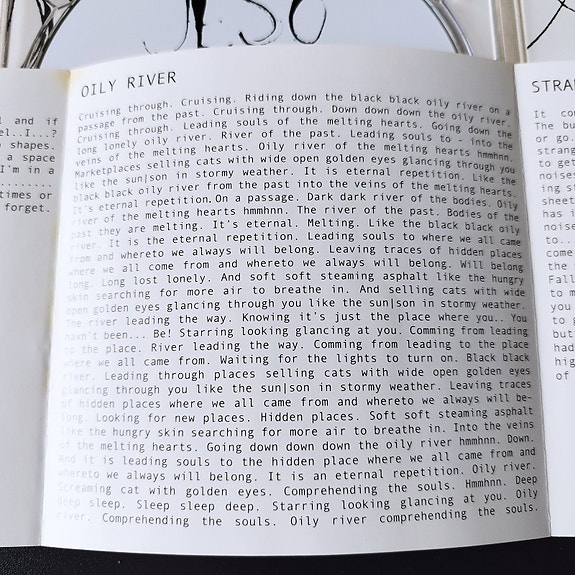 OILY RIVER
Cruising through. Cruising. Riding down the black black oily river on a
passage from the past. Cruising through. Down down down the oily river.
Cruising through. Leading souls of the melting hearts. Going down the
long lonely oily river. River of the past. Leading souls to - into the
veins of the melting hearts. Oily river of the melting hearts hmmhnn.
Marketplaces selling cats with wide open golden eyes glancing through you
like the sun|son in stormy weather. It is eternal repetition. Like the
black black oily river from the past into the veins of the melting hearts.
It's eternal repetition. On a passage. Dark dark river of the bodies. Oily
river of the melting hearts hmmhnn. The river of the past. Bodies of the
past they are melting. It's eternal. Melting. Like the black black oily
river. It is the eternal repetition. Leading souls to where we all came
from and whereto we always will belong. Leaving traces of hidden places
where we all come from and whereto we always will belong. Will belong
long. Long lost lonely. And soft soft steaming asphalt like the hungry
skin searching for more air to breathe in. And selling cats with wide
open golden eyes glancing through you like the sun|son in stormy weather.
The river leading the way. Knowing it's just the place where you.. You
havn't been... Be! Starring looking glancing at you. Comming from leading
to the place. River leading the way. Comming from leading to the place
where we all came from. Waiting for the lights to turn on. Black black
river. Leading through places selling cats with wide open golden eyes
glancing through you like the sun|son in stormy weather. Leaving traces
of hidden places where we all came from and whereto we always will be-
long. Looking for new places. Hidden places. Soft soft steaming asphalt
like the hungry skin searching for more air to breathe in. Into the veins
of the melting hearts. Going down down down the oily river hmmhnn. Down.
And it is leading souls to the hidden place where we all came from and
whereto we always will belong. It is an eternal repetition. Oily river.
Screaming cat with golden eyes. Comprehending the souls. Hmmhnn. Deep
deep sleep. Sleep sleep deep. Starring looking glancing at you. Oily
river. Comprehending the souls. Oily river comprehending the souls.
and if
el..I...?
shapes.
a space
I'm in a
..........
times or
forget.
It co
The bu
or go.
strang
to get
noises
ing si
sheet
has i
noise
to..
come
the
Fall
to m
you
to g
but
had
hig
of